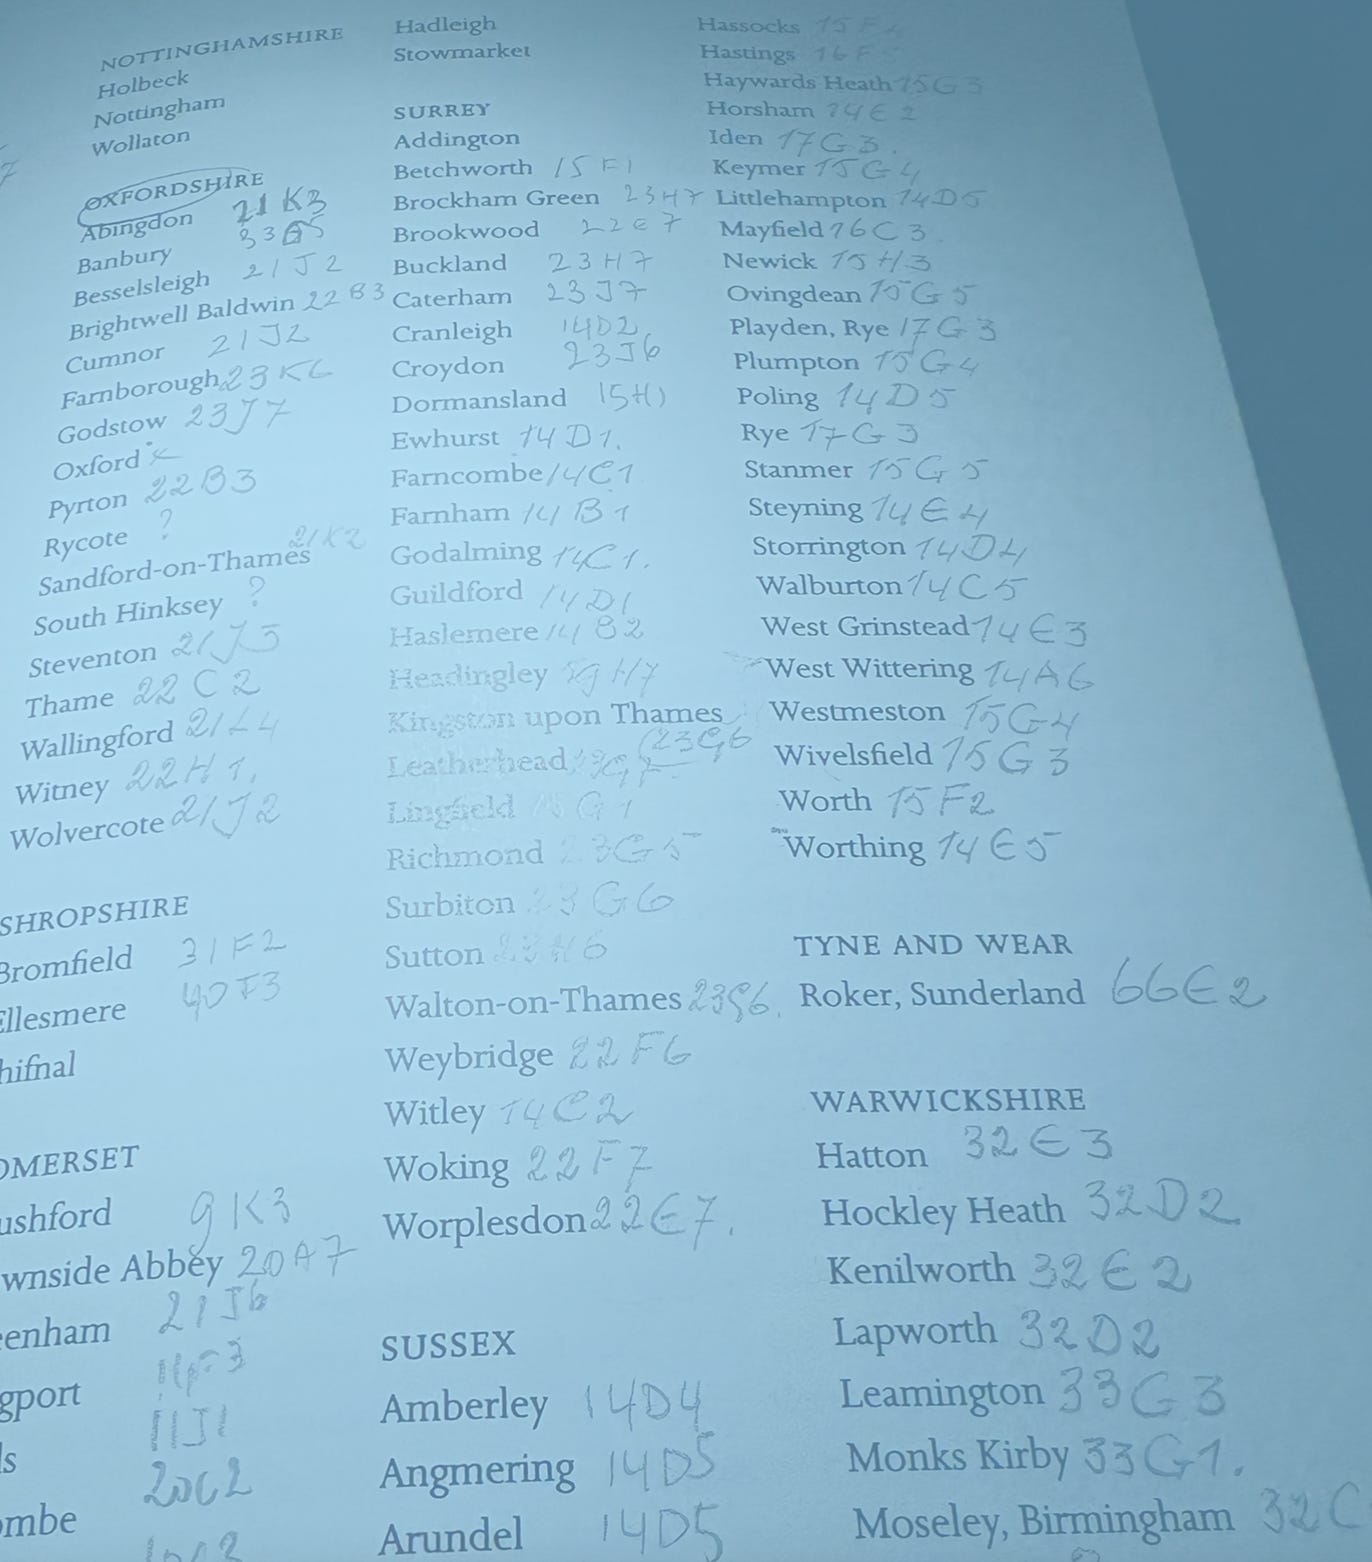 NOTTINGHAMSHIRE
Holbeck
Nottingham
Wollaton
OXFORDSHIRE
Abingdon 21 K3
Banbury 33
Besselsleigh 21 J2
Brightwell Baldwin 22 B3
Cumnor 21J2
Farnborough 23 K6
Godstow 23J7
Oxford x
Pyrton 22B3
Rycote ?
Sandford-on-Thames 21K2
South Hinksey ?
Steventon 21J3
Thame 22 C2
Wallingford 21L4
Witney 22H1.
Wolvercote 21J2
SHROPSHIRE
Bromfield 31F2
Ellesmere 40F3
hifnal
OMERSET
ushford 9K3
wnside Abbey 20A7
enham 21J6
gport
ls 11J1
mbe 20C2
Hadleigh
Stowmarket
SURREY
Addington
Betchworth 15 F1
Brockham Green 23H7
Brookwood 22E7
Buckland 23H7
Caterham 23J7
Cranleigh 14D2
Croydon 23J6
Dormansland 15H1
Ewhurst 14D1.
Farncombe 14C1
Farnham 14B1
Godalming 14C1.
Guildford 14D1
Haslemere 14B2
Headingley H7
Kingston upon Thames
Leatherhead (23G6
Lingfield G1
Richmond 23G5
Surbiton 23G6
Sutton 23H6
Walton-on-Thames 23G6.
Weybridge 22F6
Witley 14C2
Woking 22F7
Worplesdon 22E7.
SUSSEX
Amberley 14D4
Angmering 14D5
Arundel 14D5
Hassocks 15F
Hastings 16F
Haywards Heath 15G3
Horsham 14E2
Iden 17G3.
Keymer 15G4
Littlehampton 14D5
Mayfield 16C3
Newick 15H3
Ovingdean 15G5
Playden, Rye 17G3
Plumpton 15G4
Poling 14D5
Rye 17G3
Stanmer 15G5
Steyning 14E4
Storrington 14D4
Walburton 14C5
West Grinstead 14E3
West Wittering 14A6
Westmeston 15G4
Wivelsfield 15G3
Worth 15F2
Worthing 14E5
TYNE AND WEAR
Roker, Sunderland 66E2
WARWICKSHIRE
Hatton 32E3
Hockley Heath 32D2
Kenilworth 32E2
Lapworth 32D2
Leamington 33G3
Monks Kirby 33G1.
Moseley, Birmingham 32C